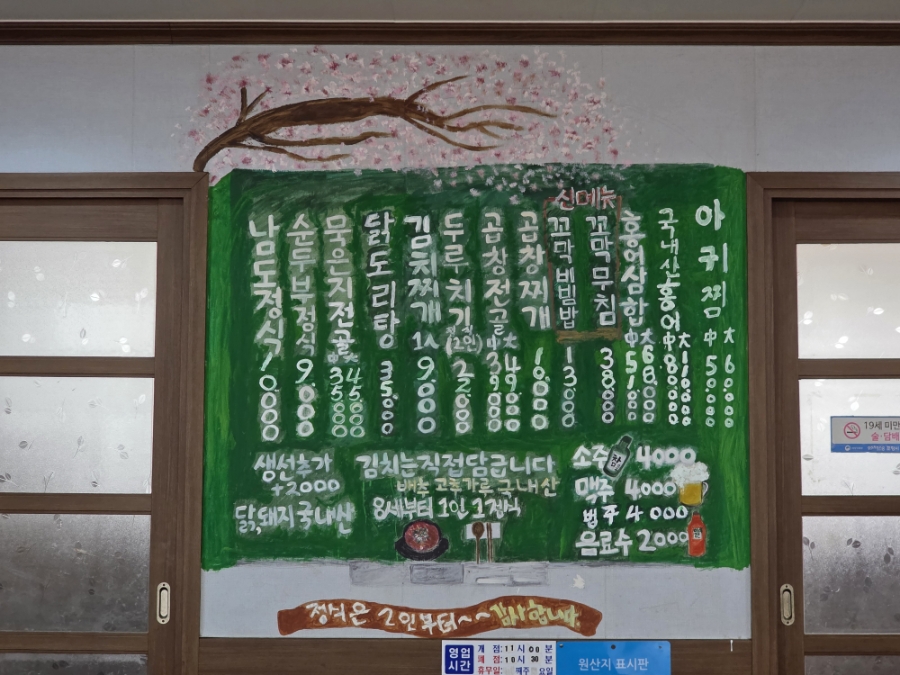 남도정식 10.000
순두부정식 9.000
묵은지전골 中 35000 大 45000
닭도리탕 35.000
김치찌개 1人 9000
두루치기 (2인)
곱창전골 中 39.000 大 49.000
곱창찌개 10.000
신메뉴
꼬막비빔밥 13000
꼬막무침
홍어삼합 中 大
국내산홍어 中 大
아귀찜 中 50.000 大 60.000
생선추가
+2000
닭,돼지 국내산
김치는 직접 담급니다
배추 고추가루 국내산
8세부터 1인 1정식
소주 4000
맥주 4.000
법주 4 000
음료수 2000
정식은 2인부터~~감사합니다.
영업시간
개 점: 11 시 00 분
폐 점: 시 30 분
휴무일: 매주 요일
원산지 표시판
19세 미만
술·담배